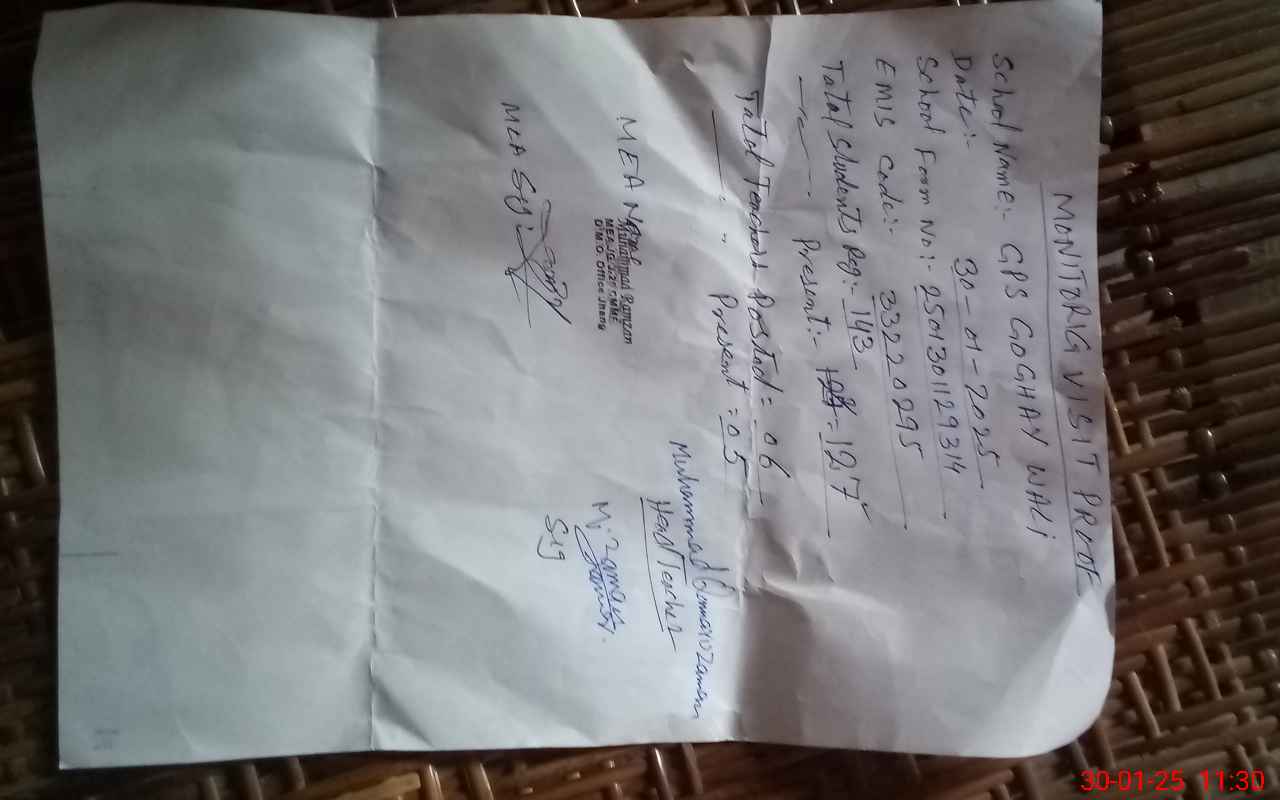 MONITORIG VISIT PROOF
School Name:- GPS GOGHAY WALI
Date:- 30-01-2025
School Form No:- 2501301129314
EMIS Code:- 33220295
Total Students Reg:- 143
Present:- 127
Total Teachers Posted = 06
" Present = 05
Muhammad
Head Teacher
MEA Name
Muhammad Ramzan
D.M.O. Office Jhang
M. Zaman
Sig
MEA Sig:
30-01-25 11:30